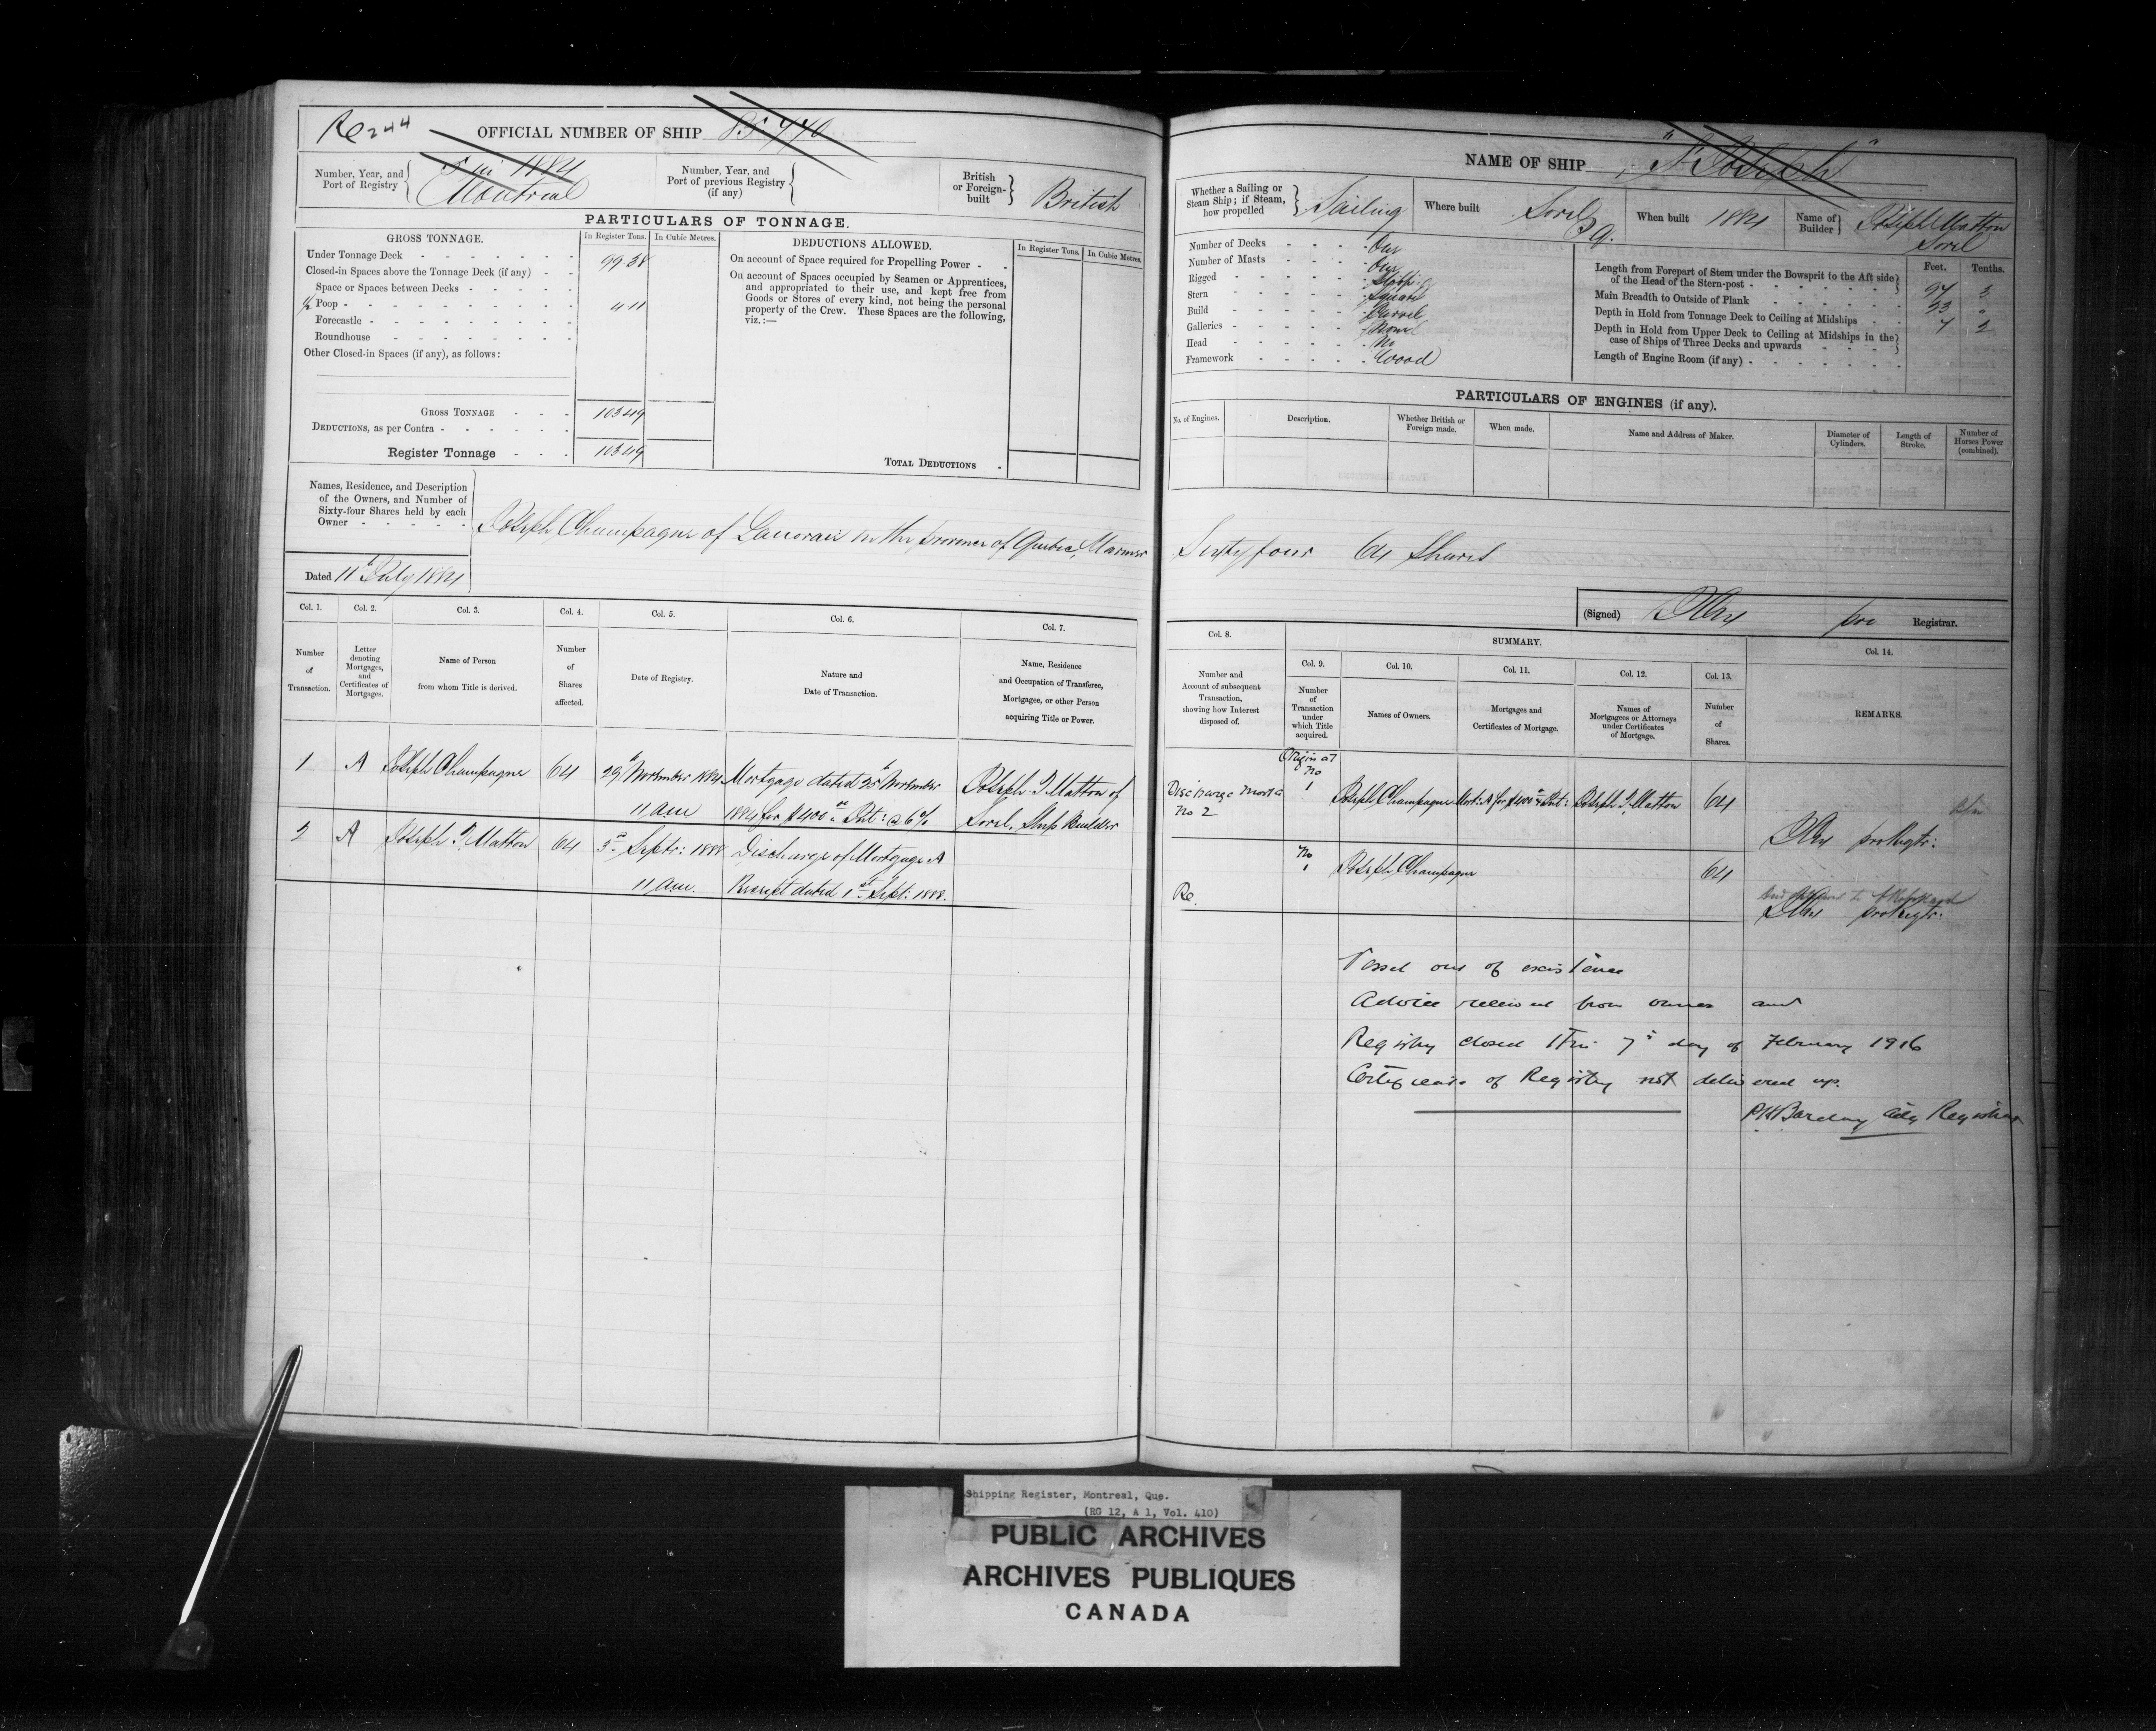 Re 244
OFFICIAL NUMBER OF SHIP 85.770
Number, Year, and Port of Registry
1884
Montreal
Number, Year, and Port of previous Registry (if any)
British or Foreign-built
British
PARTICULARS OF TONNAGE.
GROSS TONNAGE.
In Register Tons.
In Cubic Metres.
Under Tonnage Deck
99 38
Closed-in Spaces above the Tonnage Deck (if any)
Space or Spaces between Decks
Poop
4 11
Forecastle
Roundhouse
Other Closed-in Spaces (if any), as follows:
GROSS TONNAGE
103.49
DEDUCTIONS, as per Contra
Register Tonnage
103.49
DEDUCTIONS ALLOWED.
In Register Tons.
In Cubic Metres.
On account of Space required for Propelling Power
On account of Spaces occupied by Seamen or Apprentices,
and appropriated to their use, and kept free from
Goods or Stores of every kind, not being the personal
property of the Crew. These Spaces are the following,
viz.:—
TOTAL DEDUCTIONS
Names, Residence, and Description
of the Owners, and Number of
Sixty-four Shares held by each
Owner
Joseph Champagne of Lanoraie in the province of Quebec, Mariner
Dated 11th July 1884
Col. 1.
Col. 2.
Col. 3.
Col. 4.
Col. 5.
Col. 6.
Col. 7.
Number of Transaction.
Letter denoting Mortgages, and Certificates of Mortgages.
Name of Person from whom Title is derived.
Number of Shares affected.
Date of Registry.
Nature and Date of Transaction.
Name, Residence and Occupation of Transferee, Mortgagee, or other Person acquiring Title or Power.
1 A Joseph Champagne 64 29th November 1884 Mortgage dated 25th November Joseph T Matton of
11 am 1884 for $400 00 Int: @ 6% Sorel, Ship Builder
2 A Joseph T. Matton 64 3rd Septr: 1888 Discharge of Mortgage A
11 am. Receipt dated 1st Sept: 1888.
NAME OF SHIP "St Joseph"
Whether a Sailing or Steam Ship; if Steam, how propelled
Sailing
Where built
Sorel P.Q.
When built
1884
Name of Builder
Joseph Matton
Sorel
Number of Decks
One
Number of Masts
One
Rigged
Stern
Square
Build
Carvel
Galleries
None
Head
No
Framework
Wood
Feet.
Tenths.
Length from Forepart of Stem under the Bowsprit to the Aft side
of the Head of the Stern-post
97 3
Main Breadth to Outside of Plank
23 "
Depth in Hold from Tonnage Deck to Ceiling at Midships
7 2
Depth in Hold from Upper Deck to Ceiling at Midships in the
case of Ships of Three Decks and upwards
Length of Engine Room (if any)
PARTICULARS OF ENGINES (if any).
No. of Engines.
Description.
Whether British or Foreign made.
When made.
Name and Address of Maker.
Diameter of Cylinders.
Length of Stroke.
Number of Horses Power (combined).
Sixty four 64 Shares
(Signed) pro Registrar.
Col. 8.
SUMMARY.
Col. 9.
Col. 10.
Col. 11.
Col. 12.
Col. 13.
Col. 14.
Number and Account of subsequent Transaction, showing how Interest disposed of.
Number of Transaction under which Title acquired.
Names of Owners.
Mortgages and Certificates of Mortgage.
Names of Mortgagees or Attorneys under Certificates of Mortgage.
Number of Shares.
REMARKS.
Discharge Mort A
No 2
Original
No
1 Joseph Champagne Mort: A for $400 00 & Int: Joseph T. Matton 64
pro Regtr:
No
1 Joseph Champagne 64
Re.
pro Regtr:
Vessel out of existence
Advice received from owner and
Registry closed this 7th day of February 1916
Certificate of Registry not delivered up.
PH Barclay Actg Registrar
Shipping Register, Montreal, Que.
(RG 12, A 1, Vol. 410)
PUBLIC ARCHIVES
ARCHIVES PUBLIQUES
CANADA